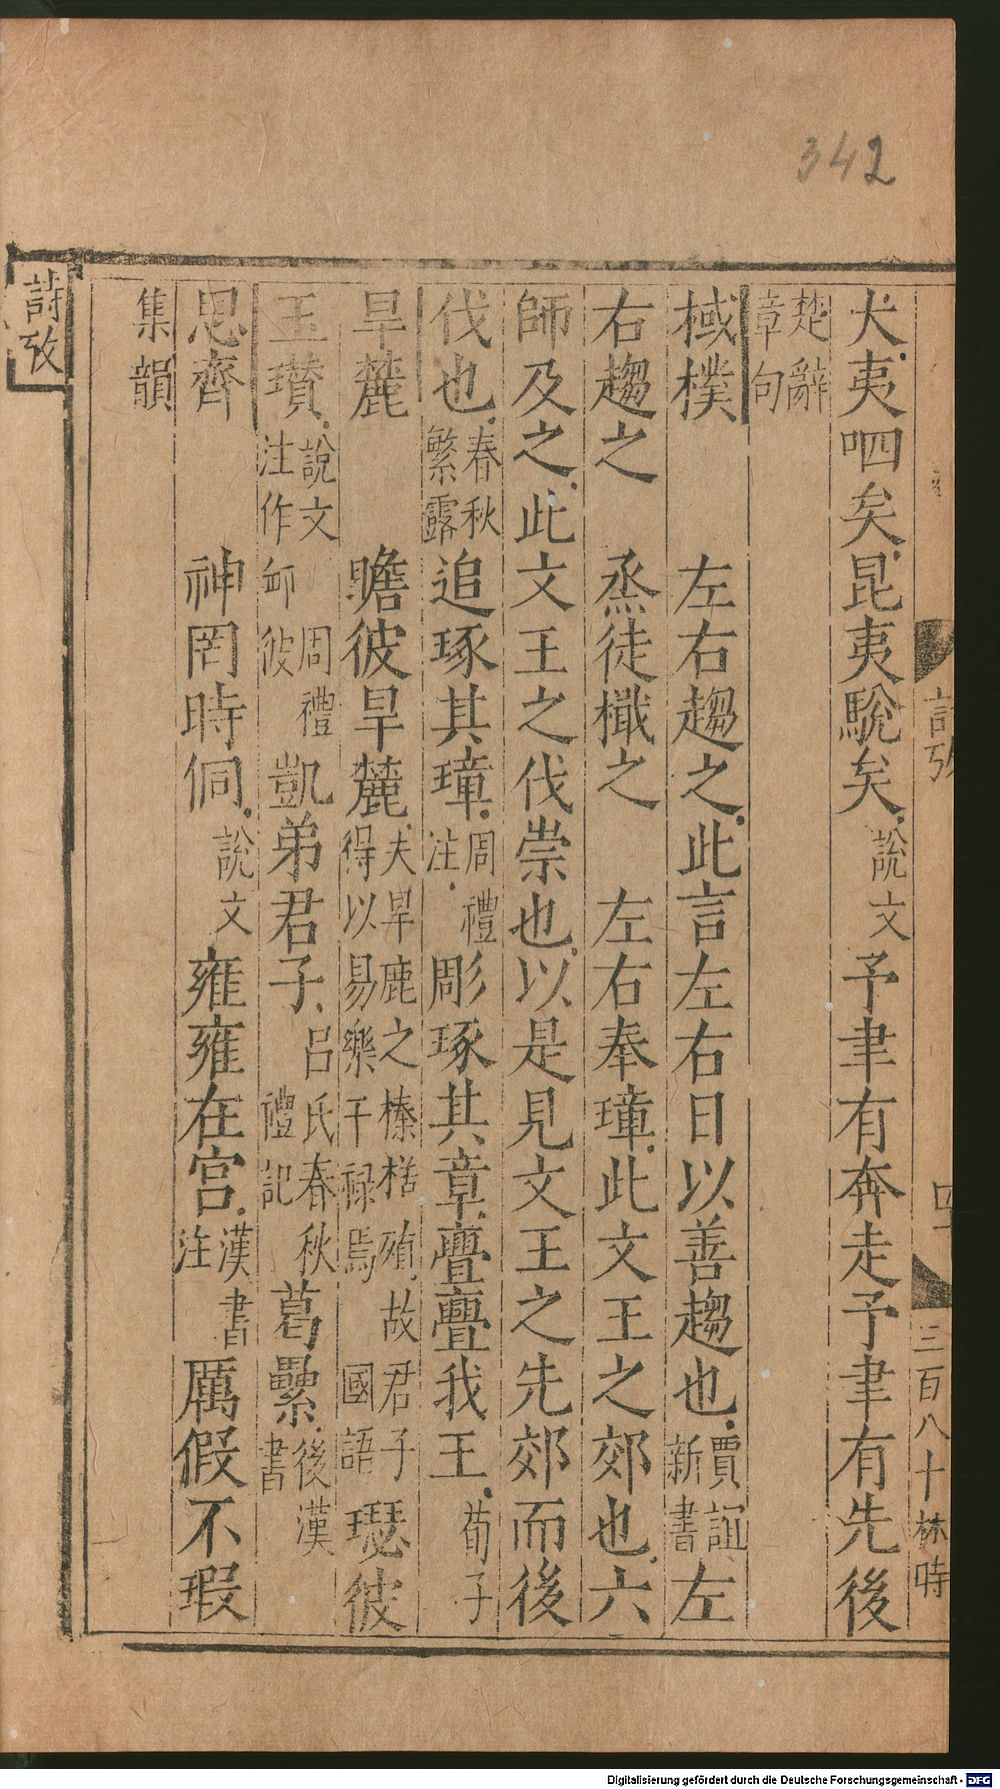 342
詩攷
詩攷
四
三百八十
林時
犬夷呬矣昆夷駾矣說文予聿有奔走予聿有先後
楚辭章句
棫樸 左右趨之此言左右日以善趨也賈誼新書左
右趨之 烝徒檝之 左右奉璋此文王之郊也六
師及之此文王之伐崇也以是見文王之先郊而後
伐也春秋繁露追琢其璋周禮注彫琢其章亹亹我王荀子
旱麓 瞻彼旱麓夫旱鹿之榛楛殖故君子得以易樂干祿焉國語瑟彼
玉瓚說文注作卹彼周禮凱弟君子呂氏春秋禮記葛纍後漢書
思齊 神罔時侗說文雍雍在宮漢書注厲假不瑕
集韻
Digitalisierung gefördert durch die Deutsche Forschungsgemeinschaft - DFG